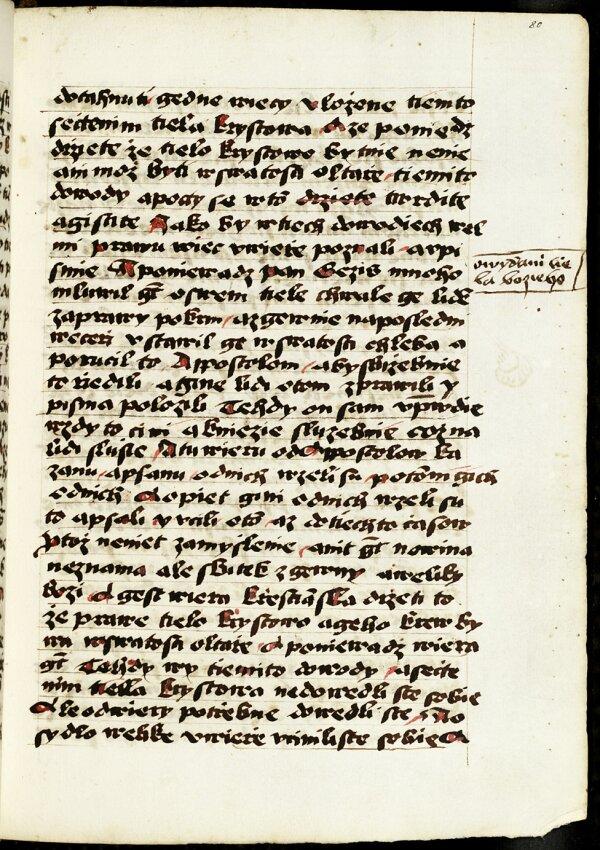 80
dotahnuti gedne wiecy vlozene tiemto
sectenim tiela krystowa A ze poniewadz
drziete ze tielo krystowo by tu nenie
ani moz byti w swatosti oltarze tiemito
dowody a pocty se w to drziete twrdite
a gistite Jako by w tiech dowodiech wel
mi prawu wiec v wierze poznali a wpi
smie A poniewadz pan Gezis mnoho
mluwil gt o swem tiele chwale ge lidem
za prawy pokrm az ge wnie naposledni
weceri vstawil ge w swatosti chleba a
porucil to Appostolom aby sluzebnie
to riedili a gine lidi o tom zprawili y
pisma polozili Tehdy on sam vprwdie
wzdy to cini a kniezie sluzebnie coz na
lidi slusie A tu wieru od Appostolow ka
zanu a psanu odnich wzeli su potom gich
odnich A opiet gini odnich wzeli su
to a psali y vcili o to az do tiechto casow
Protoz neniet zamyslenie anit gt nowina
neznama ale skutek zgewny a weliky
bozi A gest wiera krzestianska drzeti to
ze prawe tielo krystowo a geho krew by
wa w swatosti oltarze A poniewadz wiera
gt Tehdy wy tiemito dowody a secte
nim tiela krystowa nedowedli ste sobie
Ale od wiery potrebne dowedli ste A to
sydlo welike v wierze vcinili ste sobie A
o wydani tie
la bozieho